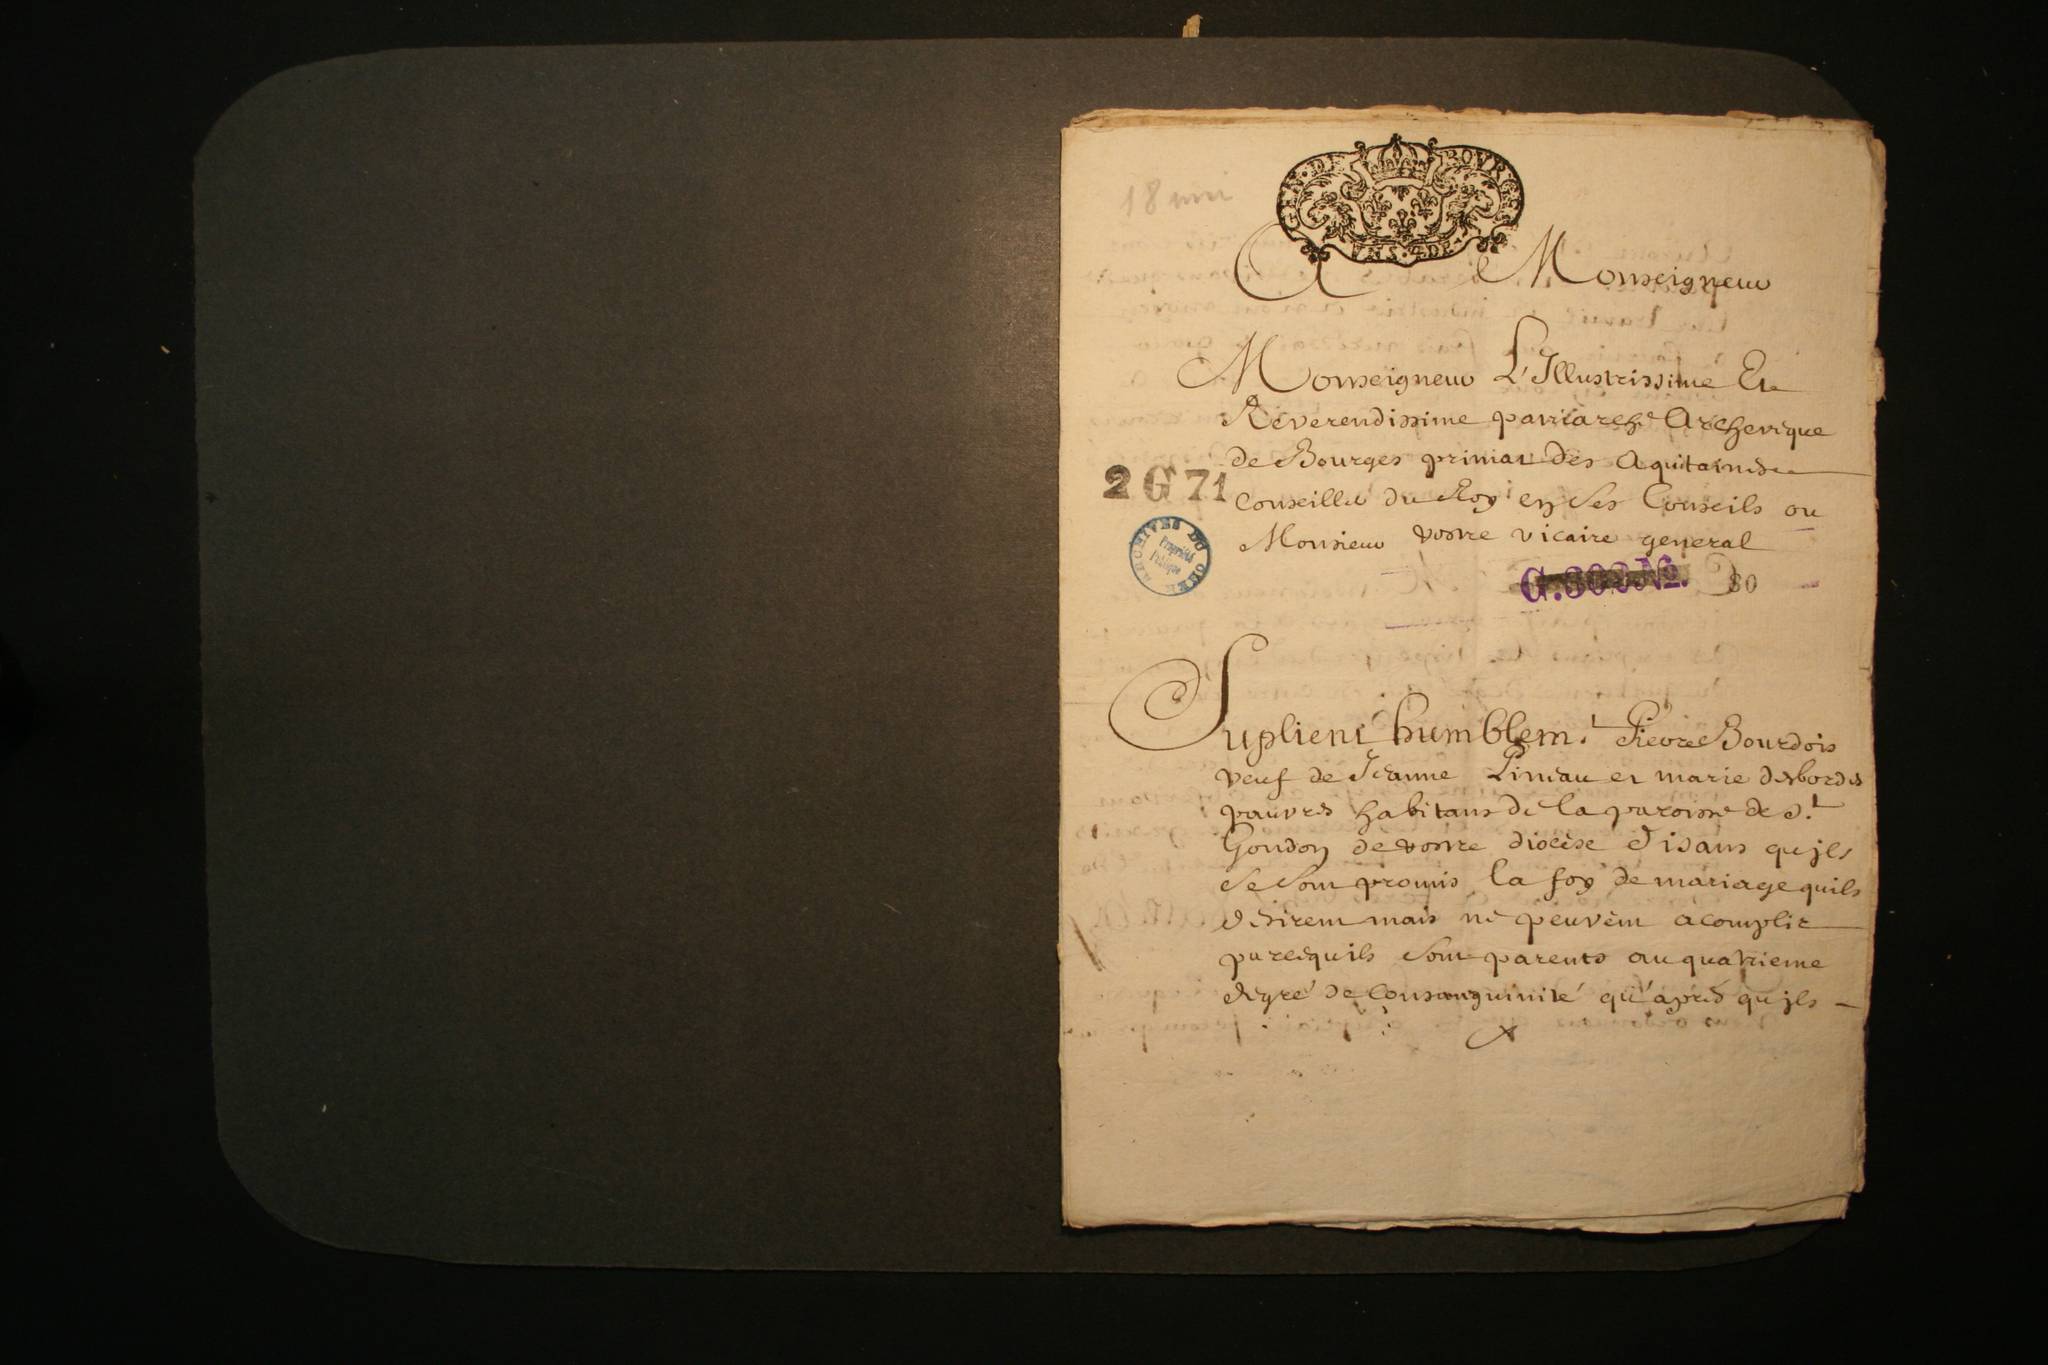 18 mai
GEN. DE BOURGES
A Monseigneur
Monseigneur L'Illustrissime Et
Reverendissime patriarche Archevêque
de Bourges primat des Aquitaines
2 G 71
Conseiller du Roy en ses Conseils ou
Monsieur vostre vicaire general
ARCHIVES DU CHER
Propriété
Publique
G. 300 No. 80
Suplient humblem.t Pierre Bourdois
veuf de Jeanne Pineau et marie desbordes
pauvres habitans de la paroisse de St.
Gondon de vostre diocèse disans qu'jls
se sont promis la foy de mariage quils
desirent mais ne peuvent acomplir
parcequ'ils sont parents au quatrieme
degré de Consanguinité qu'aprés qu'jls